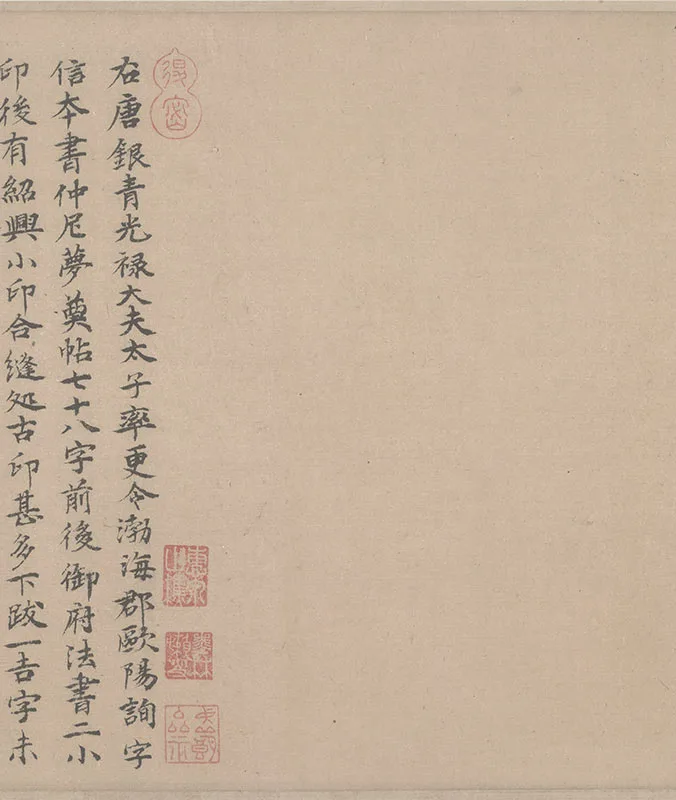 右唐銀青光禄大夫太子率更令渤海郡歐陽詢字
信本書仲尼夢奠帖七十八字前後御府法書二小
印後有紹興小印合縫处古印甚多下跋一吉字未